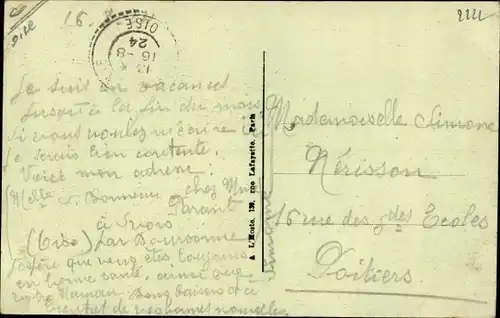 16.
OISE
13
16-8
24
Je suis en vacances
jusqu'à la fin du mois
si vous voulez m'écrire
je serais bien contente.
Voici mon adresse
Melle S. Bonneau chez Mme
Parant
à
(Oise) par
J'espère que vous êtes toujours
en bonne santé, ainsi que
votre Maman. Bons baisers et à
bientôt de vos bonnes nouvelles.
Simone
A L'Hoste, 139, rue Lafayette, Paris
Mademoiselle Simone
Nérisson
16 rue des gdes Ecoles
Poitiers